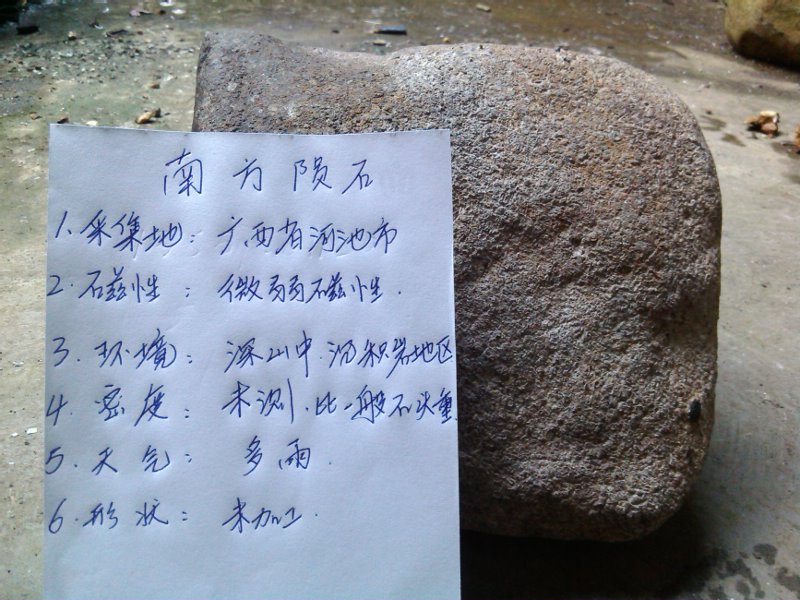 南方陨石
1、采集地：广西省河池市
2.磁性：微弱磁性.
3.环境：深山中.沉积岩地区
4.密度：未测.比一般石头重
5.天气：多雨.
6.形状：未加工.